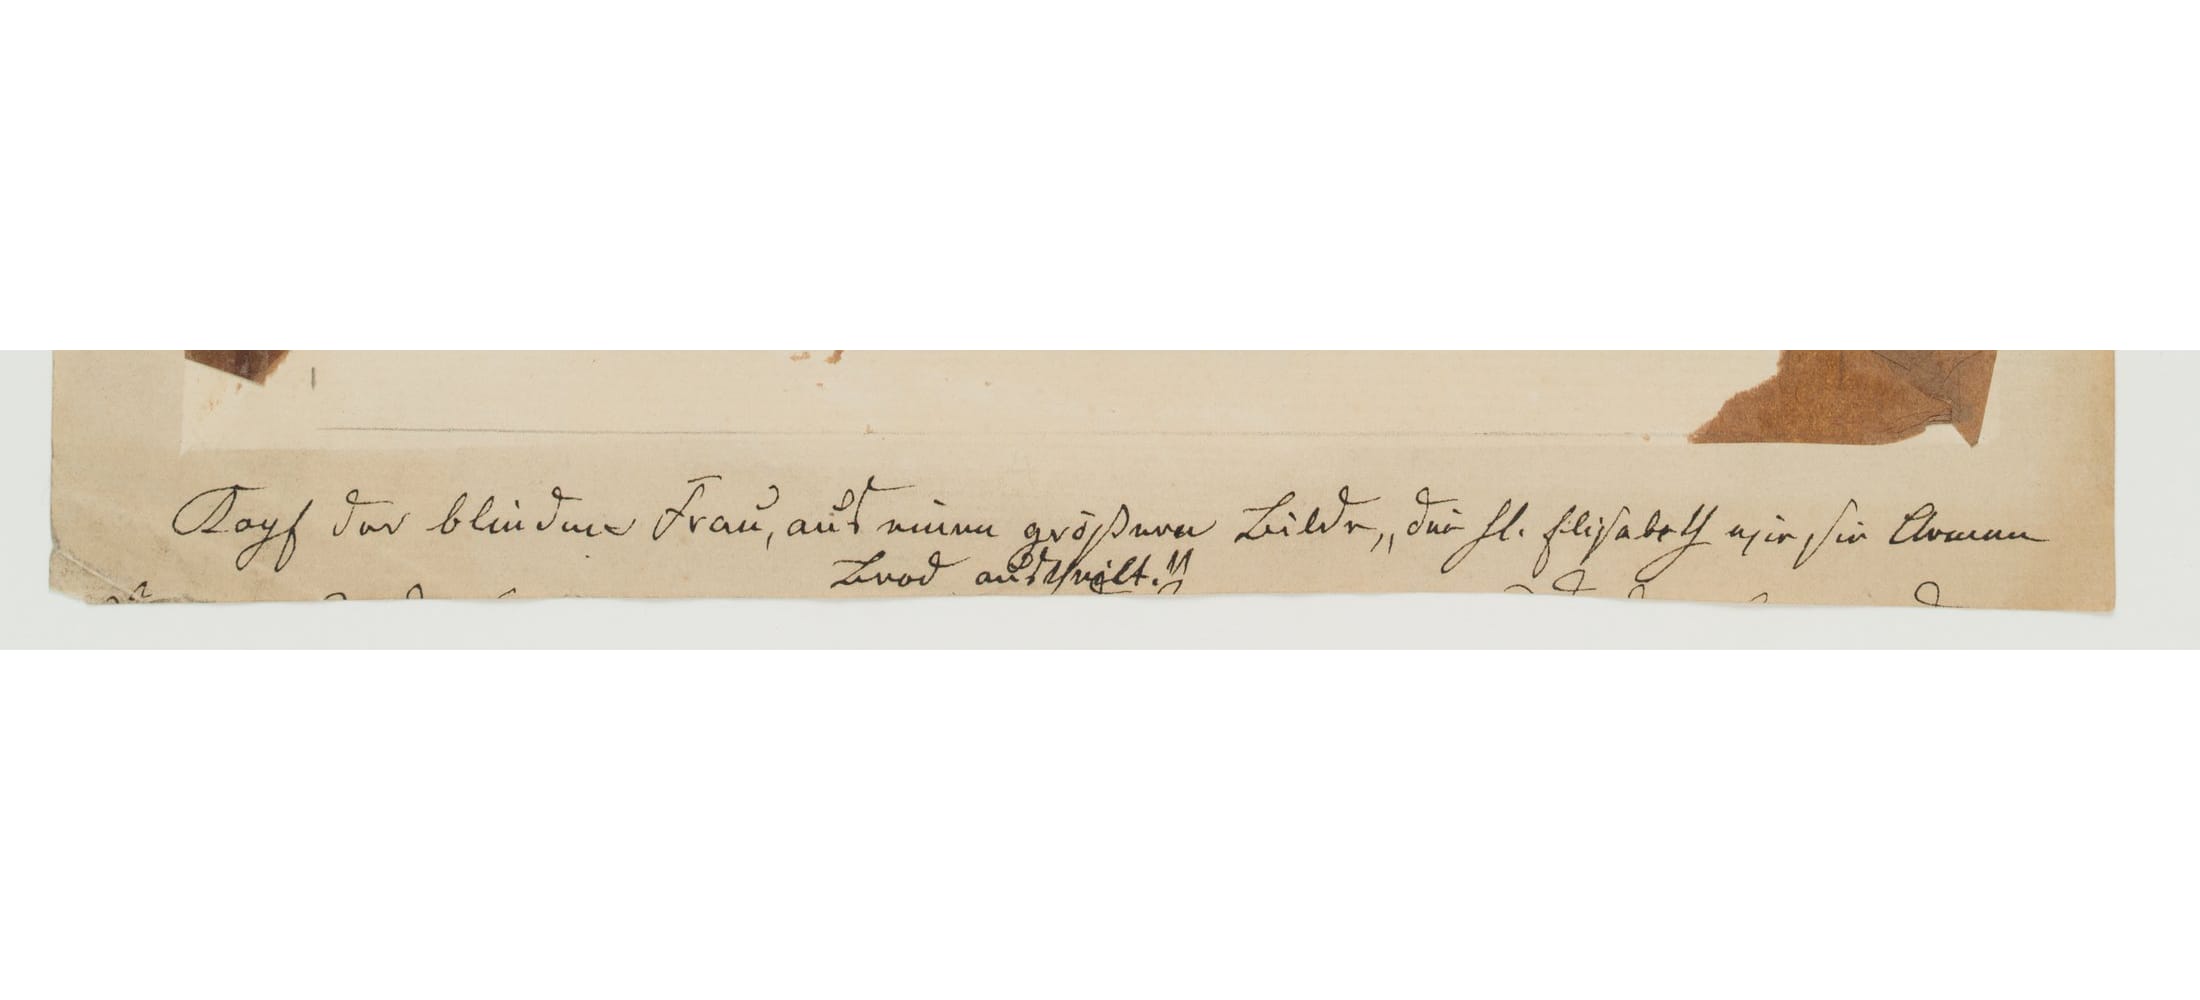 Kopf der blinden Frau, aus einem größeren Bilde, „die hl. Elisabeth wie sie Armen
Brod austheilt."